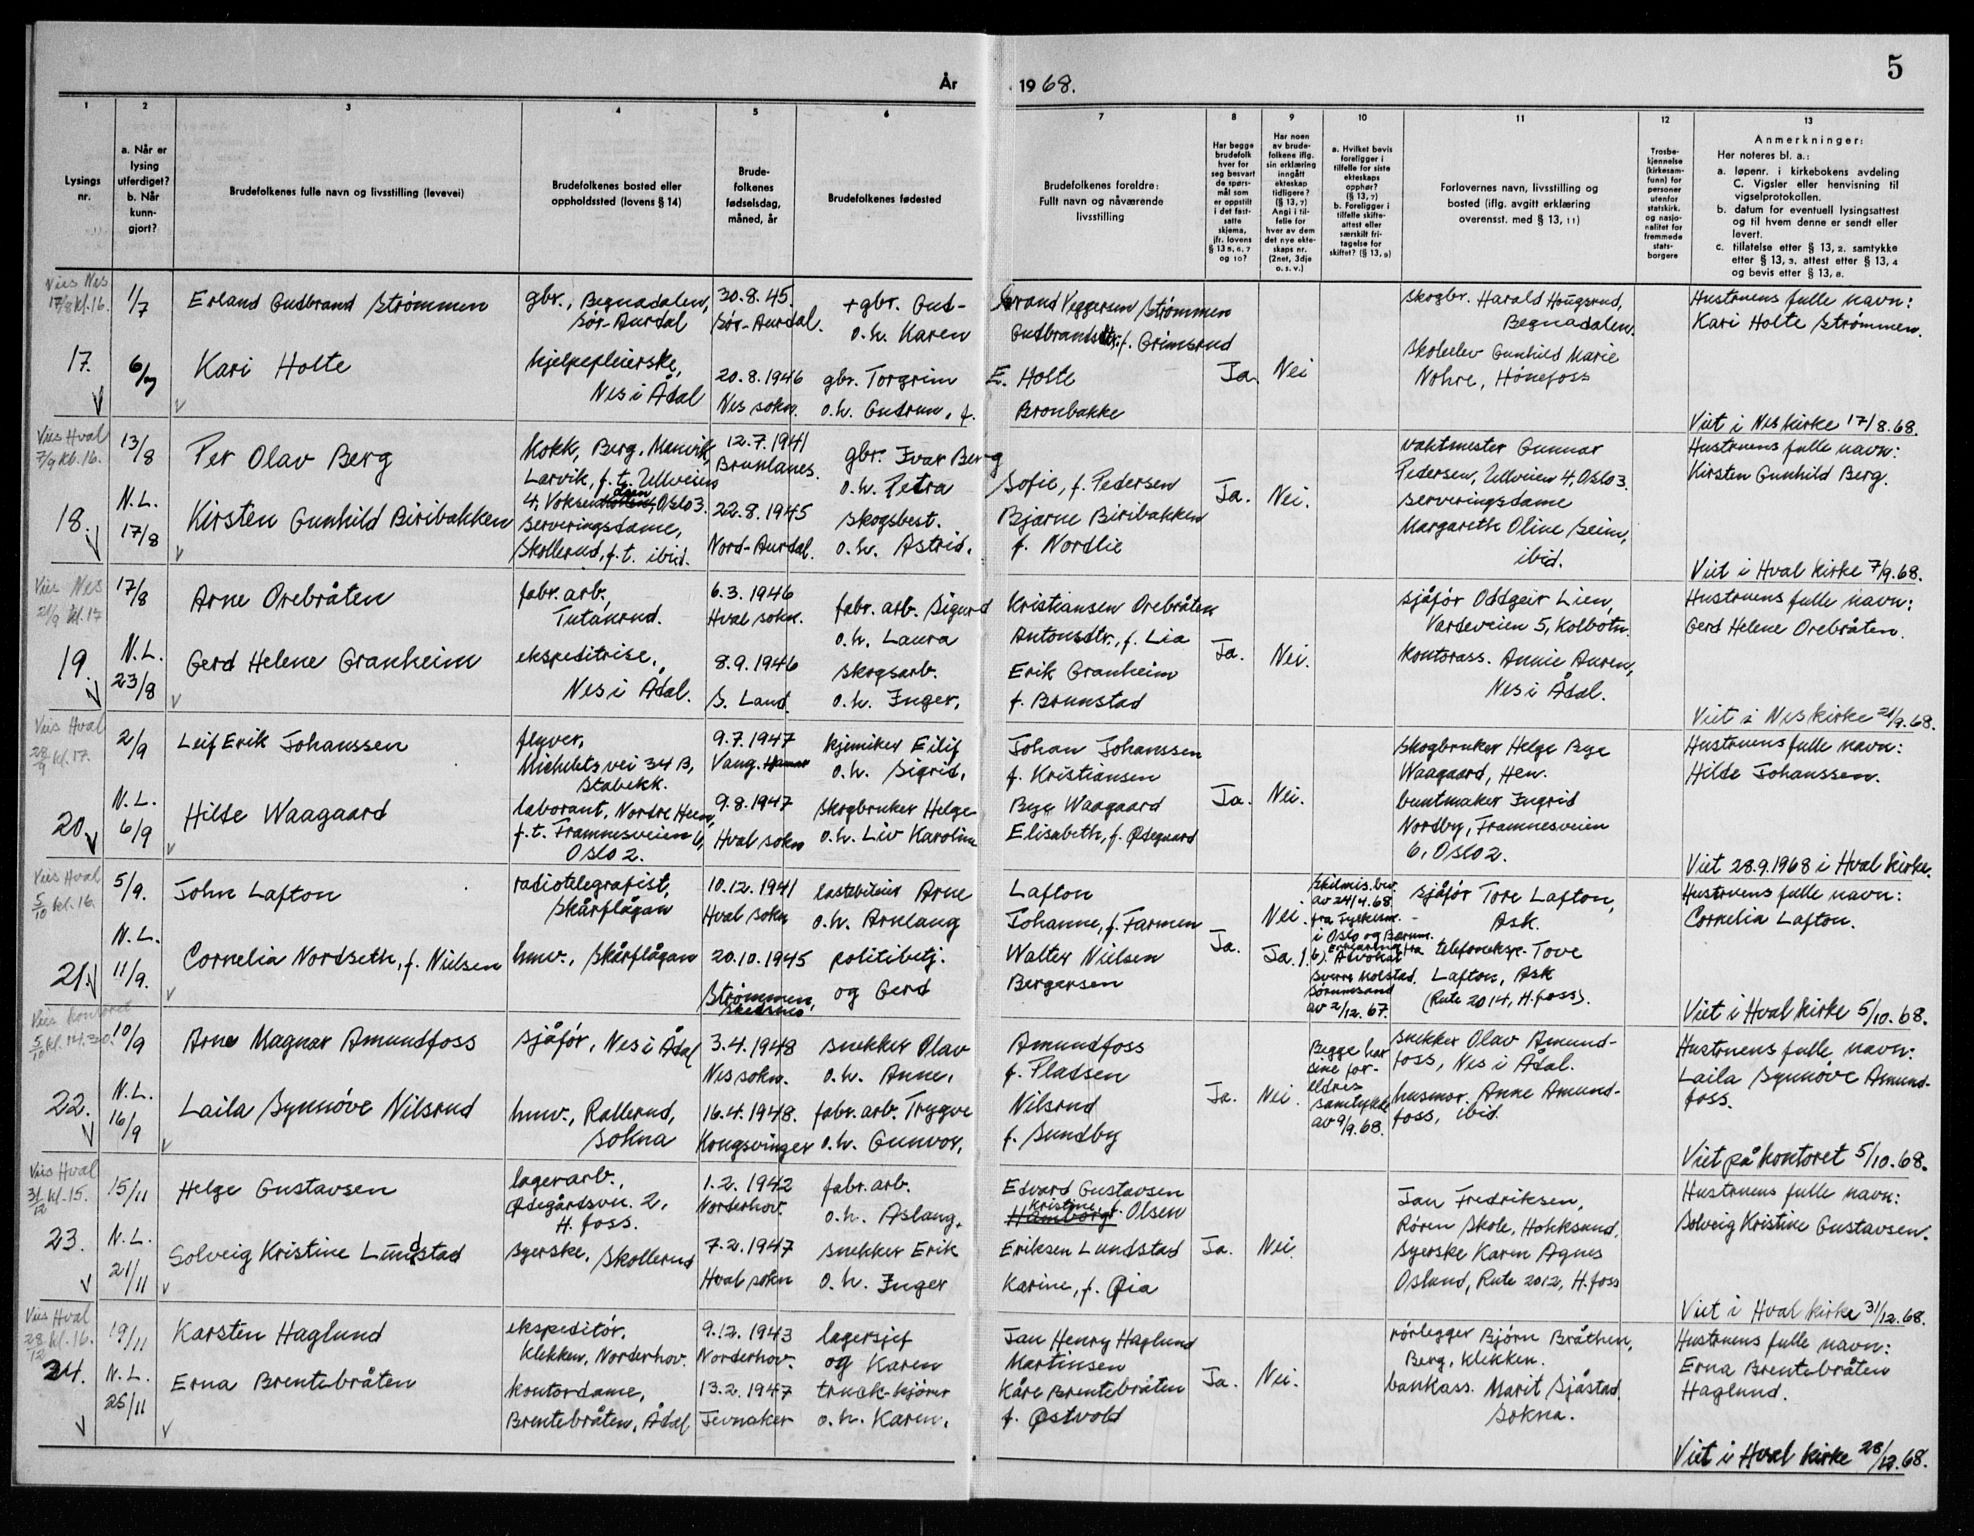 År 1968. 5
1 2 3 4 5 6 7 8 9 10 11 12 13
Lysings nr.
a. Når er lysing utferdiget? b. Når kunn- gjort?
Brudefolkenes fulle navn og livsstilling (levevei)
Brudefolkenes bosted eller oppholdssted (lovens § 14)
Brude- folkenes fødselsdag, måned, år
Brudefolkenes fødested
Brudefolkenes foreldre: Fullt navn og nåværende livsstilling
Har begge brudefolk hver for seg besvart de spørs- mål som er oppstilt i det fast- satte skjema, jfr. lovens § 13 5, 6, 7 og 10?
Har noen av brude- folkene iflg. sin erklæring inngått ekteskap tidligere? (§ 13, 7) Angi i til- felle for hver av dem det nye ekte- skaps nr. (2net, 3dje o. s. v.)
a. Hvilket bevis foreligger i tilfelle for siste ekteskaps opphør? (§ 13, 7) b. Foreligger i tilfelle skifte- attest eller særskilt fri- tagelse for skiftet? (§ 13, 9)
Forlovernes navn, livsstilling og bosted (iflg. avgitt erklæring overensst. med § 13, 11)
Trosbe- kjennelse (kirkesam- funn) for personer utenfor statskirk. og nasjo- nalitet for fremmede stats- borgere
Anmerkninger:
Her noteres bl. a.:
a. løpenr. i kirkebokens avdeling C. Vigsler eller henvisning til vigselprotokollen.
b. datum for eventuell lysingsattest og til hvem denne er sendt eller levert.
c. tillatelse etter § 13, 2. samtykke etter § 13, 3, attest etter § 13, 4 og bevis etter § 13, 8.
Vies Nes
17/8 kl. 16. 1/7 Erland Gudbrand Strømmen gbr., Begnadalen, 30.8.45. + gbr. Gud- brand Veggersen Strømmen skogbr. Harald Haugsrud, Hustruens fulle navn:
Sør-Aurdal Sør-Aurdal. o.h. Karen Gudbrandsdtr. f. Grimsrud Begnadalen. Kari Holte Strømmen.
17. 6/7 Kari Holte hjelpepleierske, 20.8.1946 gbr. Torgrim E. Holte Ja. Nei skoleelev Gunhild Marie
Nes i Ådal Nes sokn. o.h. Gudrun, f. Bronbakke Nohre, Hønefoss
Viet i Nes kirke 17/8.68.
Vies Hval
7/9 kl. 16. 13/8 Per Olav Berg kokk, Berg, Larvik, f.t. Ullveien 4, Oslo 3. 12.7.1941 Brunlanes. gbr. Ivar Berg vaktmester Gunnar Hustruens fulle navn:
o.h. Petra Sofie, f. Pedersen Pedersen, Ullveien 4, Oslo 3. Kirsten Gunhild Berg.
18. N.L. 17/8 Kirsten Gunhild Biribakken serveringsdame, 22.8.1945 skogsbest. Bjarne Biribakken Ja. Nei. serveringsdame
Skollerud, f.t. ibid. Nord-Aurdal. o.h. Astrid, f. Nordlie Margareth Oline Seim, ibid.
Viet i Hval kirke 7/9.68.
Vies Nes
21/9 kl. 17 17/8 Arne Orebråten fabr. arb., 6.3.1946 fabr. arb. Sigurd Kristiansen Orebråten sjåfør Oddgeir Lien, Hustruens fulle navn:
Hval sokn. o.h. Laura Antonsdtr., f. Lia Vardeveien 5, Kolbotn. Gerd Helene Orebråten.
19. N.L. 23/8 Gerd Helene Granheim ekspeditrise, 8.9.1946 skogsarb. Erik Granheim Ja. Nei. kontorass. Annie Auren,
Nes i Ådal. S. Land. o.h. Inger, f. Brunstad Nes i Ådal.
Viet i Nes kirke 21/9.68.
Vies Hval
28/9 kl. 17. 2/9 Leif Erik Johanssen flyver, 9.7.1947 kjemiker Eilif Johan Johanssen skogbruker Helge Bye Hustruens fulle navn:
Michelets vei 34 B, Stabekk. Vang. Hamar o.h. Sigrid, f. Kristiansen Waagaard, Hen. Hilde Johanssen.
20. N.L. 6/9 Hilde Waagaard laborant, Nordre Hen, 9.8.1947 skogbruker Helge Bye Waagaard Ja. Nei. buntmaker Ingrid
f.t. Framnesveien 6, Oslo 2. Hval sokn o.h. Liv Karoline Elisabeth, f. Ødegaard Nordby, Framnesveien 6, Oslo 2.
Viet 28.9.1968 i Hval kirke.
Vies Hval
5/10 kl. 16. 5/9. John Lafton radiotelegrafist, 10.12.1941 lastebileier Arne Lafton Nei. Skilsmis.bev. av 24/4.68 fra Fylkesm. i Oslo og Bærum. sjåfør Tore Lafton, Hustruens fulle navn:
Skårflågan Hval sokn o.h. Arnlaug Johanne, f. Farmen Ask. Cornelia Lafton.
21. N.L. 11/9. Cornelia Nordseth, f. Nielsen hmv., Skårflågan 20.10.1945 politibetj. Walter Nielsen Ja. Ja. 1. b). Erklæring fra Advokat Sverre Molstad, Sørumsand av 2/12.67. telefoneksp. Tove
Strømmen, Skedsmo og Gerd Bergersen Lafton, Ask (Rute 2014, H.foss).
Viet i Hval kirke 5/10.68.
Vies kontoret
5/10 kl. 14.30. 10/9 Arne Magnar Amundfoss sjåfør, Nes i Ådal 3.4.1948 snekker Olav Amundfoss Begge har sine for- eldres samtykke av 9/9.68. snekker Olav Amund- Hustruens fulle navn:
Nes sokn. o.h. Anne, f. Pladsen foss, Nes i Ådal. Laila Synnøve Amund-
22. N.L. 16/9 Laila Synnøve Nilsrud hmv., Rallerud, 16.4.1948. fabr. arb. Trygve Nilsrud Ja. Nei. husmor. Anne Amund- foss.
Sokna Kongsvinger o.h. Gunvor, f. Sundby foss, ibid.
Viet på kontoret 5/10.68.
Vies Hval
31/12 kl. 15. 15/11 Helge Gustavsen lagerarb., 1.2.1942 fabr. arb. Edvard Gustavsen Jan Fredriksen, Hustruens fulle navn:
Ødegårdsvn. 2, H.foss. Norderhov. o.h. Aslaug, Kristine, f. Olsen Røren Skole, Hokksund. Solveig Kristine Gustavsen.
23. N.L. 21/11 Solveig Kristine Lundstad syerske, Skollerud 7.2.1947 snekker Erik Eriksen Lundstad Ja. Nei. syerske Karen Agnes
Hval sokn o.h. Inger Karine, f. Øia Osland, Rute 2012, H.foss
Viet i Hval kirke 31/12.68.
Vies Hval
28/12 kl. 16. 19/11 Karsten Haglund ekspeditør, 9.12.1943 lagersjef Jan Henry Haglund rørlegger Bjørn Bråthen, Hustruens fulle navn:
Klekken, Norderhov. Norderhov. og Karen Martinsen Berg, Klekken. Erna Brentebråten
24. N.L. 25/11 Erna Brentebråten kontordame, 13.2.1947 truck-kjører Kåre Brentebråten Ja. Nei. bankass. Marit Sjåstad, Haglund.
Brentebråten, Ådal Jevnaker o.h. Karen, f. Østvold Sokna.
Viet i Hval kirke 28/12.68.